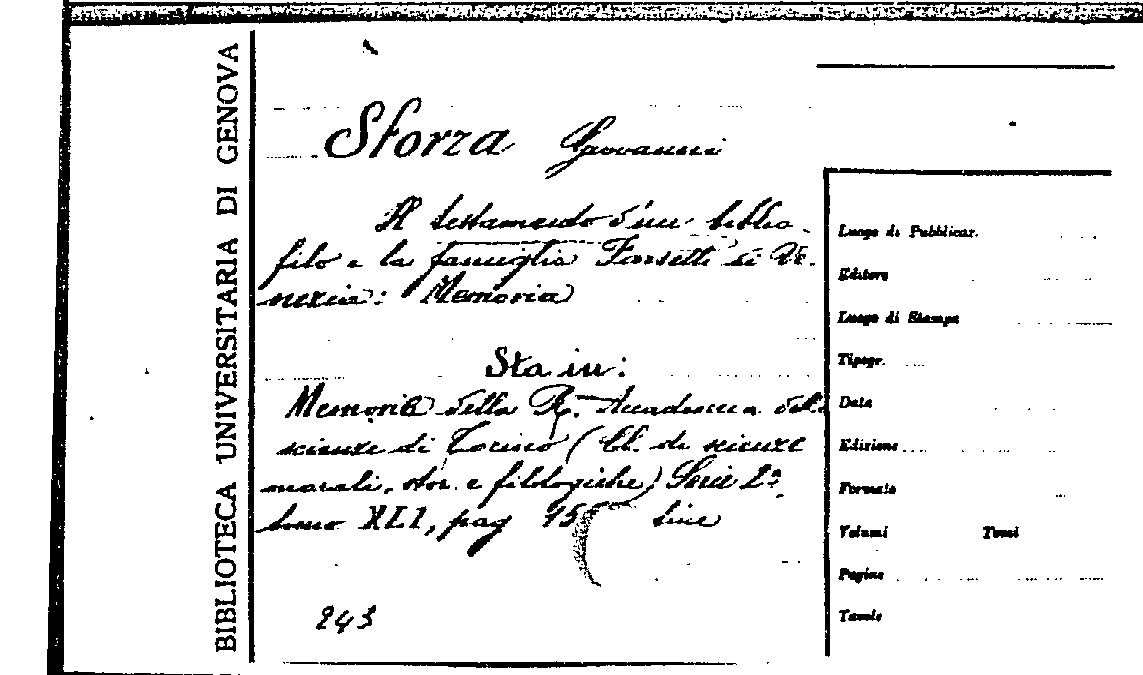 BIBLIOTECA UNIVERSITARIA DI GENOVA
Sforza Giovanni
Il testamento d'un biblio-
filo e la famiglia Farsetti di Ve-
nezia: Memoria
Sta in:
Memorie della R. Accademia delle
scienze di Torino (Cl. di scienze
morali, stor. e filologiche) Serie 2ª,
tomo XLI, pag
243
Luogo di Pubblicaz.
Editore
Luogo di Stampa
Tipogr.
Data
Edizione
Formato
Volumi Tomi
Pagine
Tavole